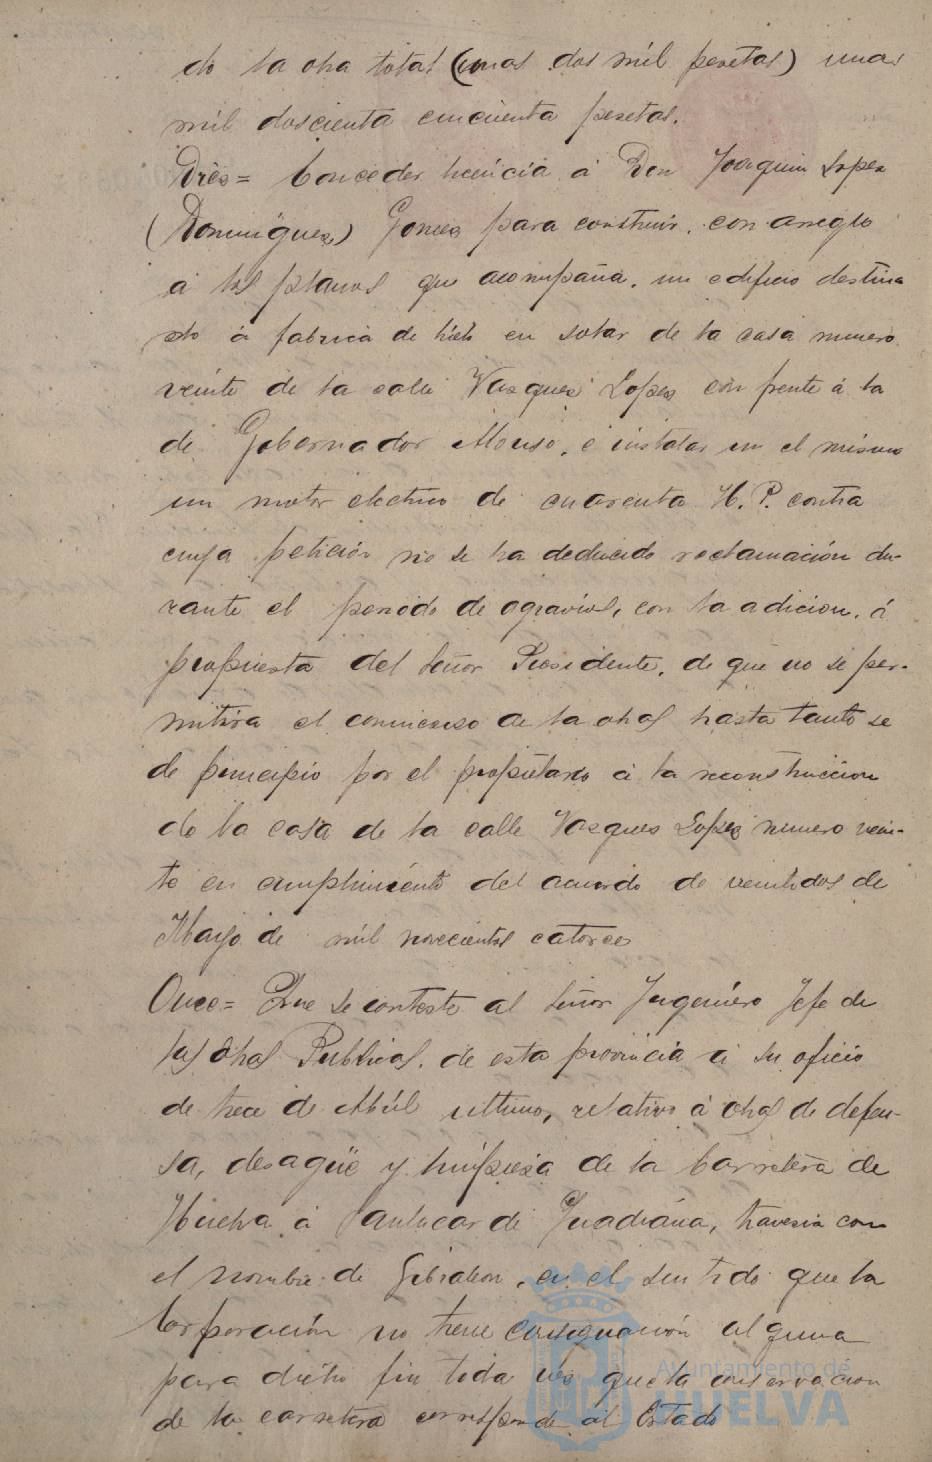 do la obra total (unas dos mil pesetas) unas
mil doscienta cincuenta pesetas.
Dies= Conceder licencia á Don Joaquin Lopez
(Dominguez) Gomez para construir, con arreglo
á los planos que acompaña, un edificio destina
do á fabrica de hielo en solar de la casa numero
veinte de la calle Vazquez Lopez con frente á la
de Gobernador Alonso, é instalar en el mismo
un motor electrico de cuarenta H. P. contra
cuya petición no se ha deducido reclamación du-
rante el periodo de agravios, con la adicion, á
propuesta del Señor Presidente, de que no se per-
mitira el comienzo de la obras hasta tanto se
de principio por el propietario á la reconstruccion
de la casa de la calle Vazques Lopez numero vein-
te en cumplimiento del acuerdo de veintidos de
Mayo de mil novecientos catorce
Once= Que se conteste al Señor Ingeniero Jefe de
las Obras Publicas, de esta provincia á su oficio
de trece de Abril ultimo, relativo á obras de defen-
sa, desagüe y limpieza de la Carretera de
Huelva á Sanlucar de Guadiana, travesia con
el nombre de Gibraleon, en el sentido que la
Corporación no tiene consignación alguna
para dicho fin toda vez que la conservacion
de la carretera corresponde al Estado
Ayuntamiento de
HUELVA